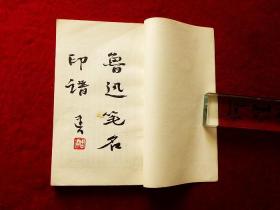 鲁迅笔名
印谱